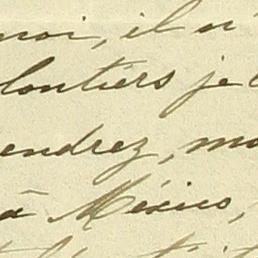 moi, il n'
lontiers je
endrez, mo
à México,